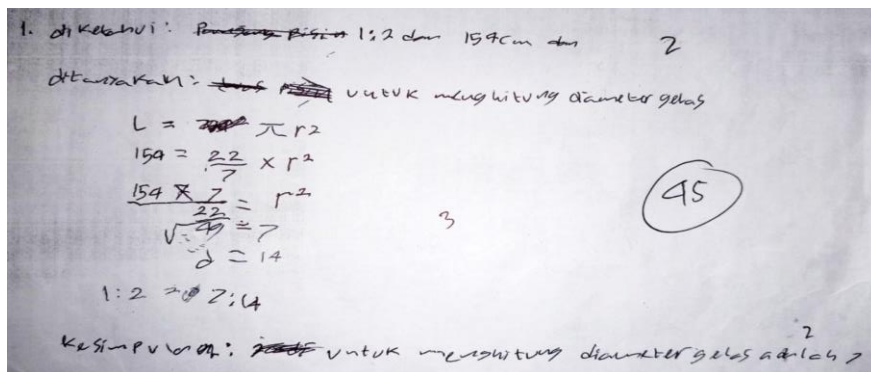 1. diketahui: 1:2 dan 154cm dan 2
ditanyakan: untuk menghitung diameter gelas
L = π r2
154 = 22/7 × r²
154 × 7 / 22 = r²
√49 = 7
45
3
d = 14
1:2 = 7:14
2
Kesimpulan: untuk menghitung diameter gelas adalah 7